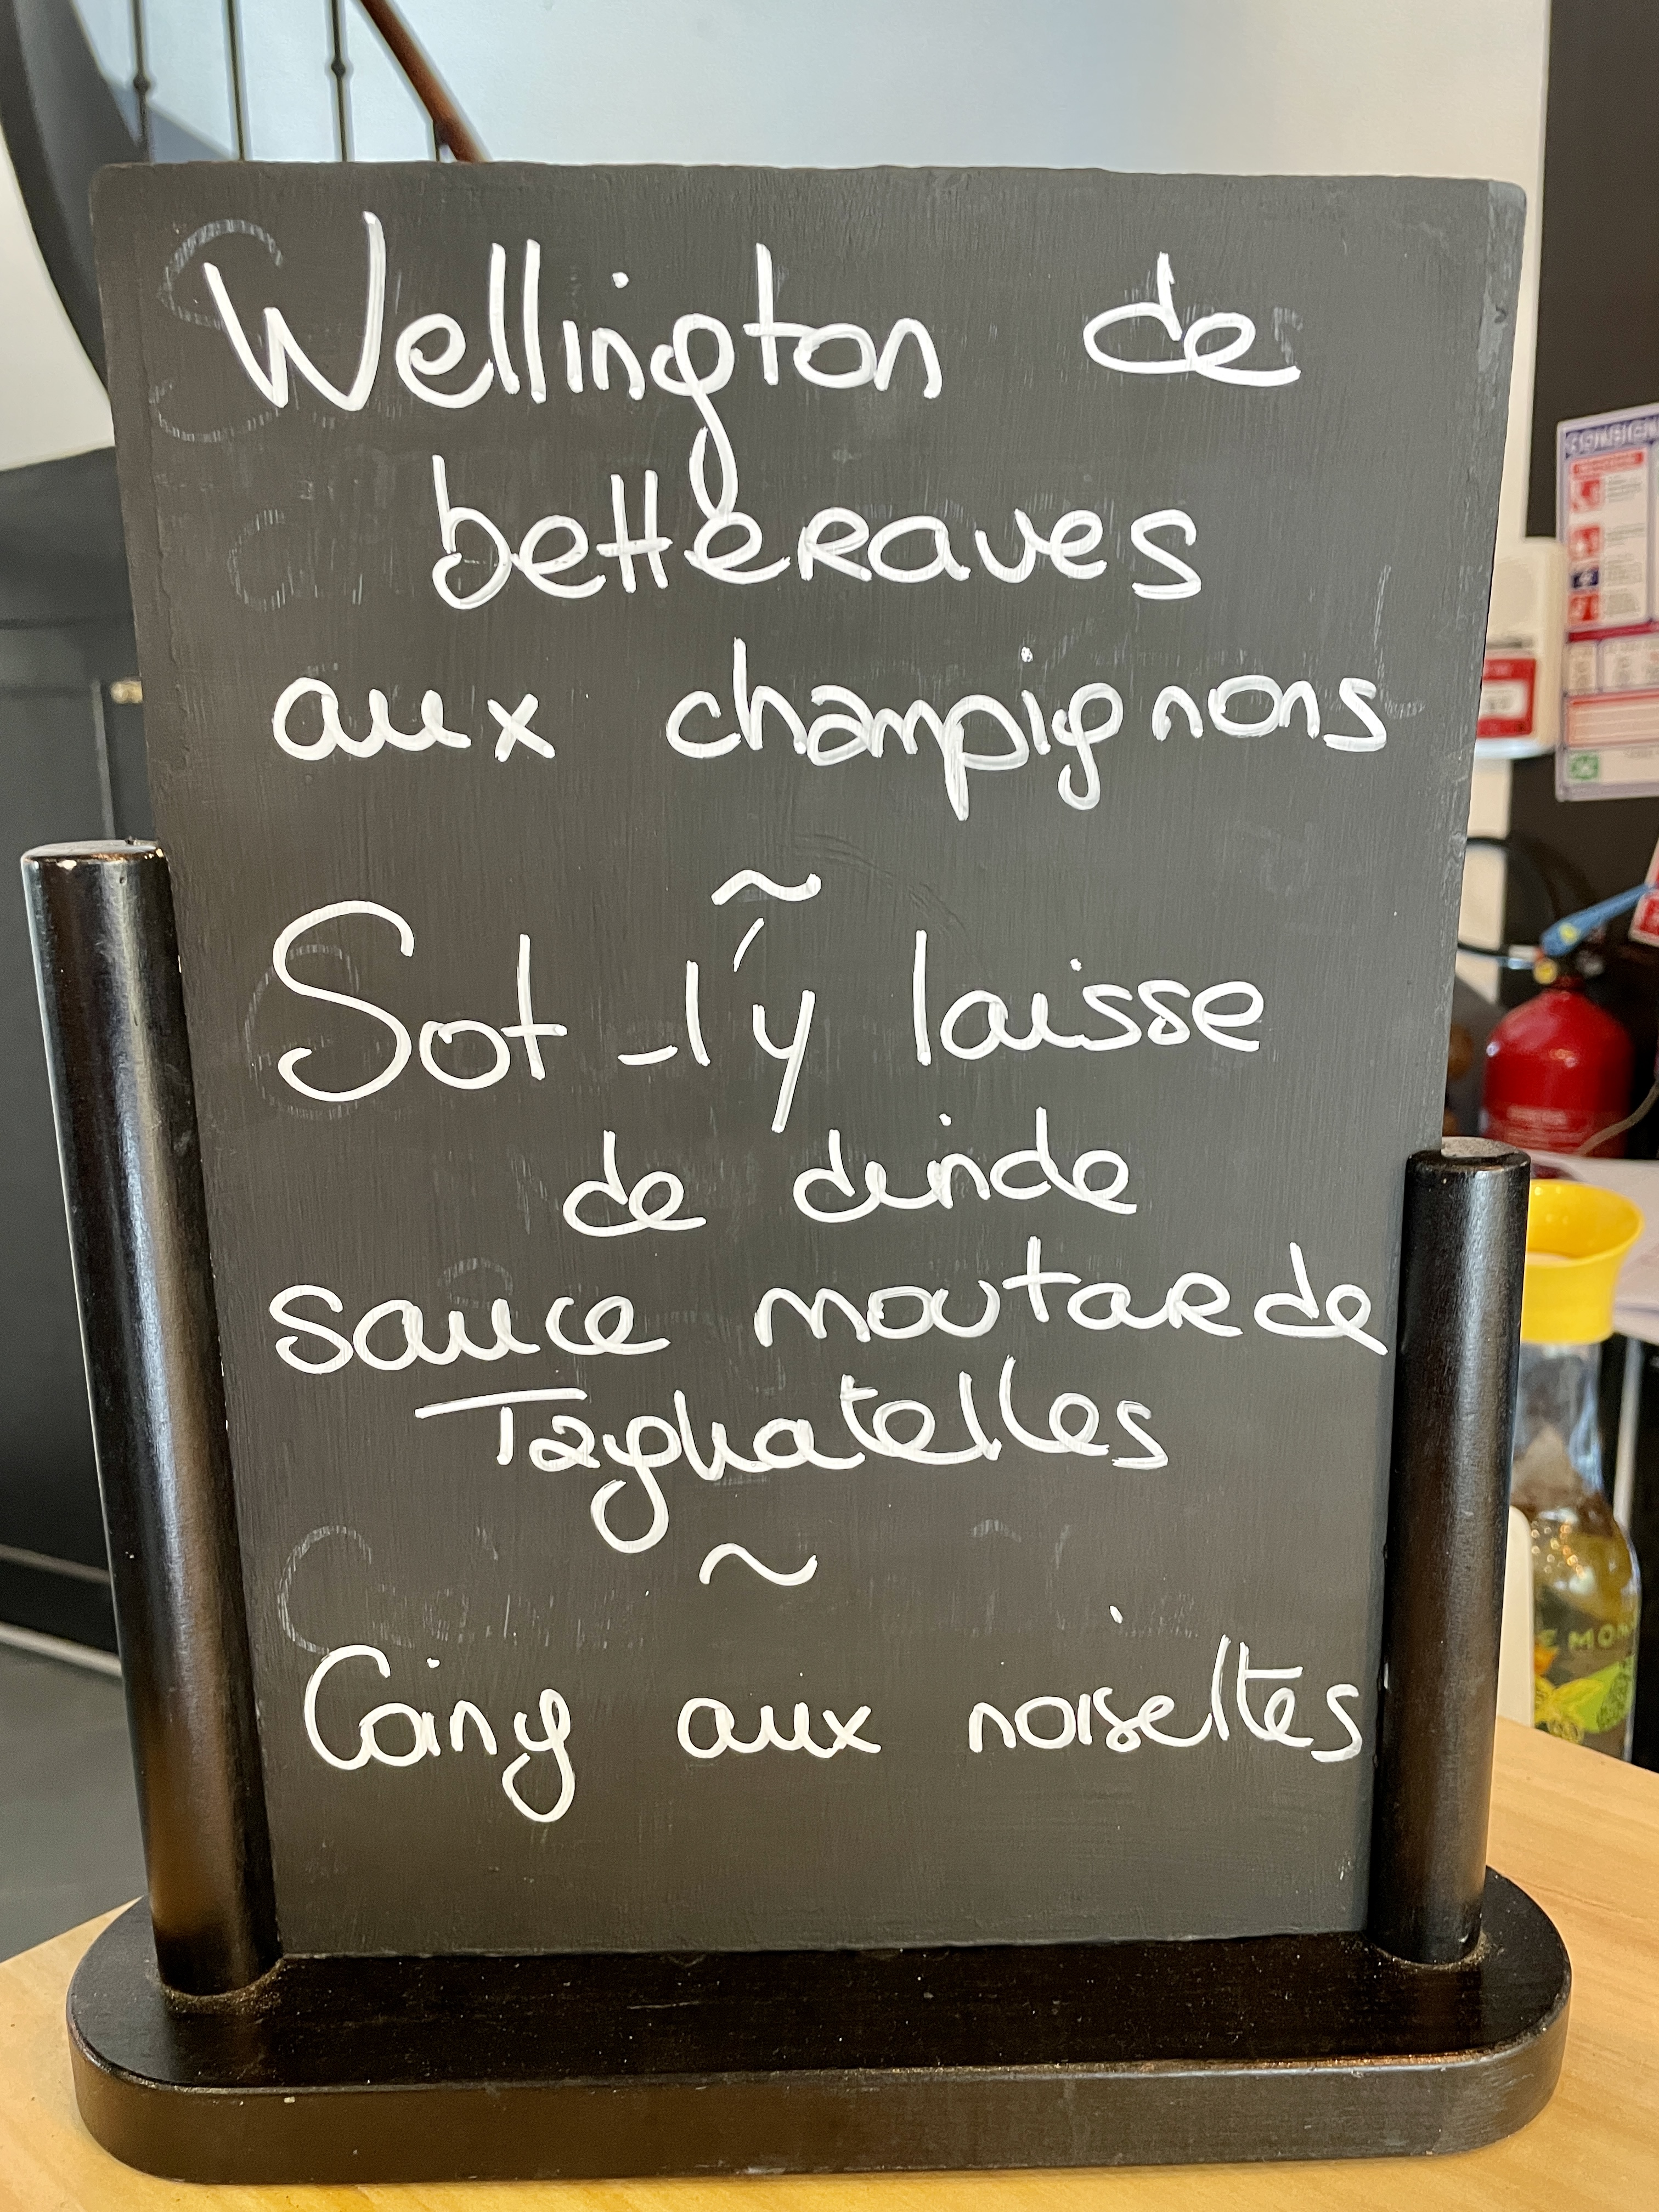 Wellington de
betteraves
aux champignons
~
Sot-l'y laisse
de dinde
sauce moutarde
Tagliatelles
~
Coing aux noisettes